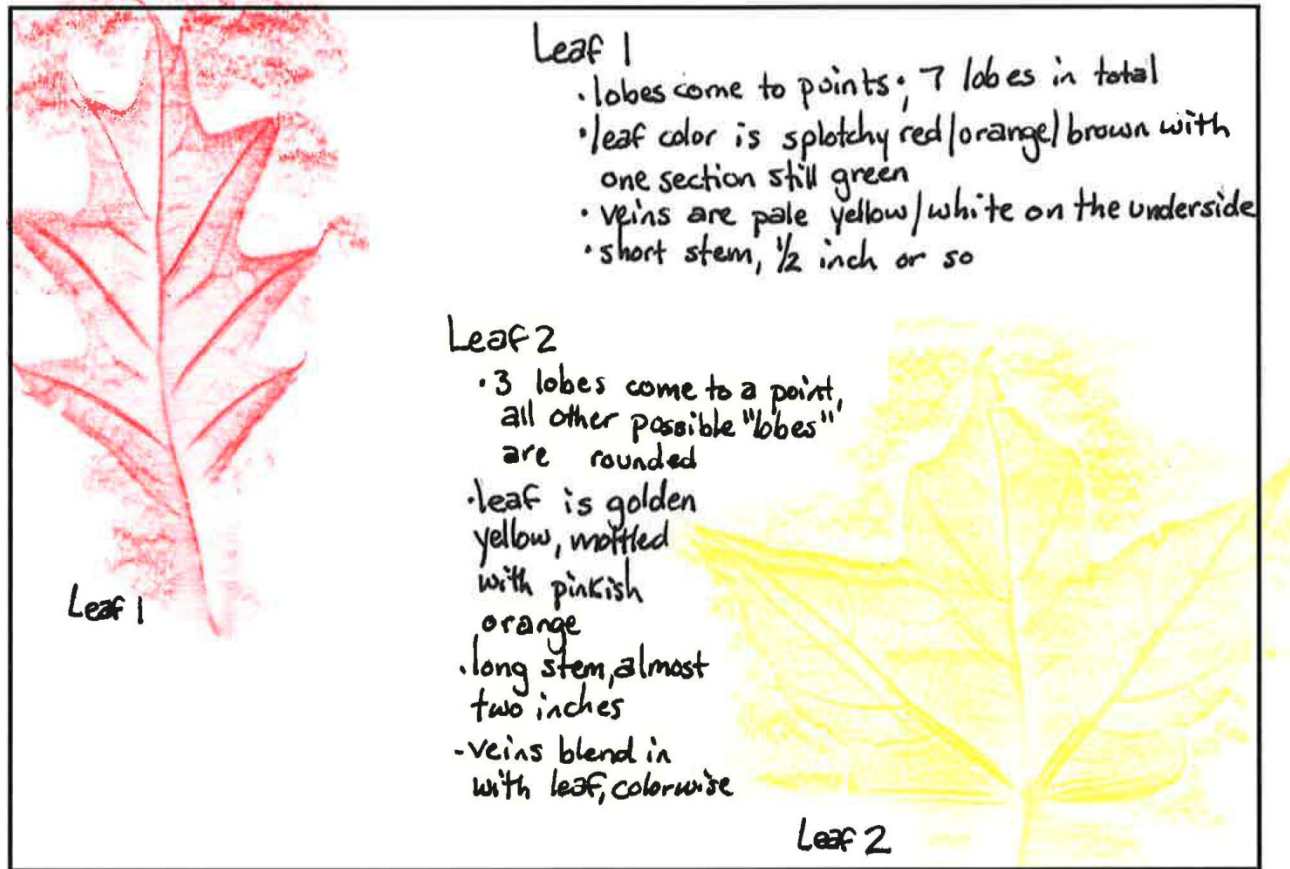 Leaf 1
· lobes come to points; 7 lobes in total
· leaf color is splotchy red/orange/brown with
one section still green
· veins are pale yellow/white on the underside
· short stem, 1/2 inch or so
Leaf 2
· 3 lobes come to a point,
all other possible "lobes"
are rounded
· leaf is golden
yellow, mottled
with pinkish
orange
· long stem, almost
two inches
- veins blend in
with leaf, colorwise
Leaf 1
Leaf 2